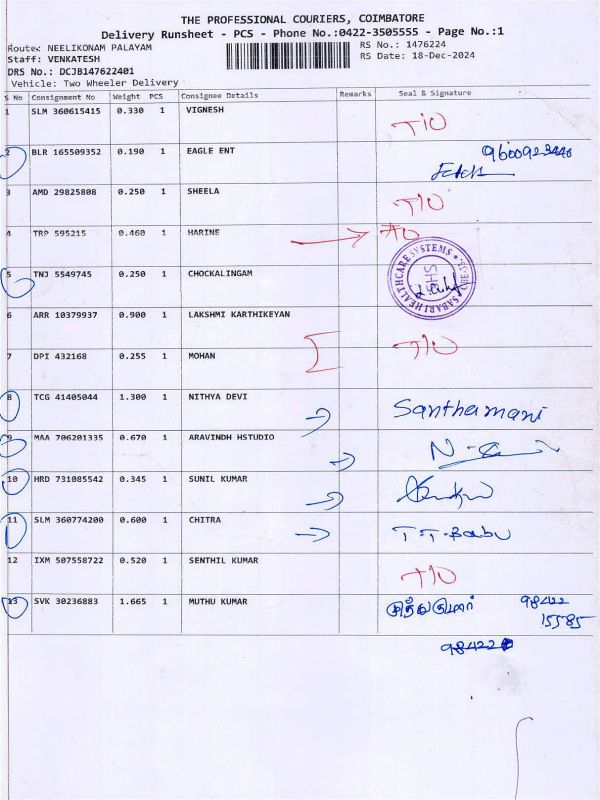 THE PROFESSIONAL COURIERS, COIMBATORE
Delivery Runsheet - PCS - Phone No.:0422-3505555 - Page No.:1
Route: NEELIKONAM PALAYAM
RS No.: 1476224
Staff: VENKATESH
RS Date: 18-Dec-2024
DRS No.: DCJB147622401
Vehicle: Two Wheeler Delivery
S No Consignment No Weight PCS Consignee Details Remarks Seal & Signature
1 SLM 360615415 0.330 1 VIGNESH T/O
2 BLR 165509352 0.190 1 EAGLE ENT
3 AMD 29825808 0.250 1 SHEELA T/O
4 TRP 595215 0.460 1 HARINE
5 TNJ 5549745 0.250 1 CHOCKALINGAM SABARI HEALTHCARE SYSTEMS SHS
6 ARR 10379937 0.900 1 LAKSHMI KARTHIKEYAN
7 DPI 432168 0.255 1 MOHAN T/O
8 TCG 41405044 1.300 1 NITHYA DEVI Santhamani
9 MAA 706201335 0.670 1 ARAVINDH HSTUDIO
10 HRD 731085542 0.345 1 SUNIL KUMAR
11 SLM 360774200 0.600 1 CHITRA T.T.Babu
12 IXM 507558722 0.520 1 SENTHIL KUMAR T/O
13 SVK 30236883 1.665 1 MUTHU KUMAR முத்துகுமார் 98422
15585